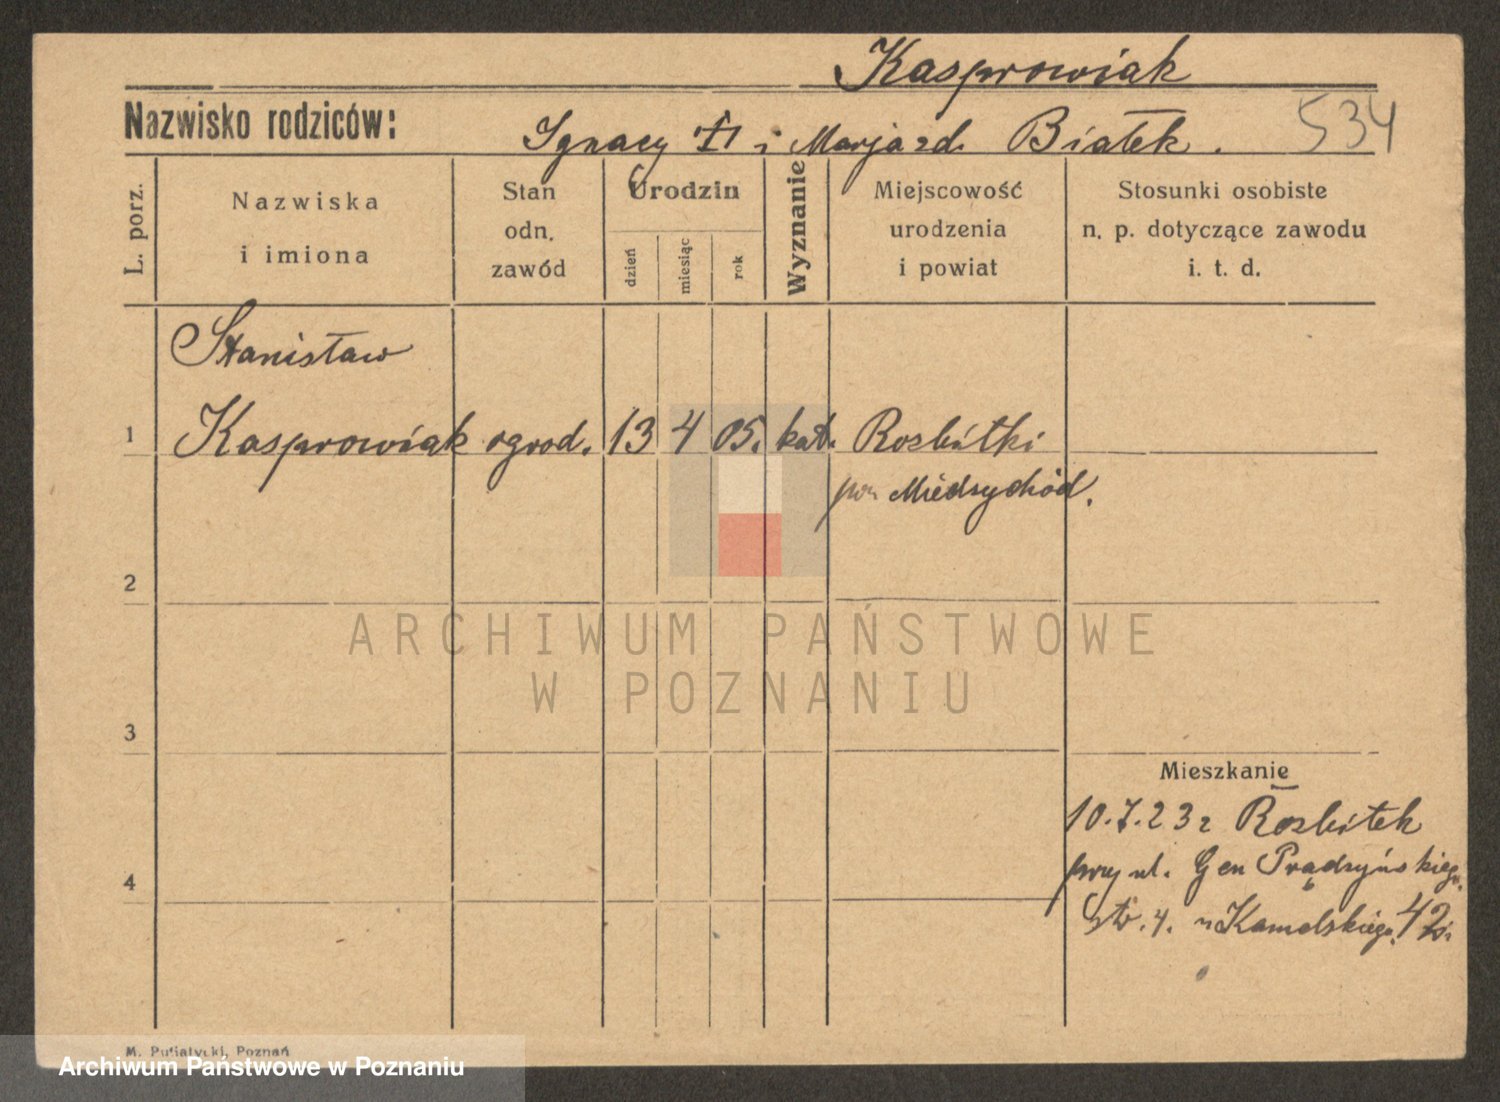 Kasprowiak
Nazwisko rodziców:
Ignacy i Marja zd. Białek.
534
L. porz.
Nazwiska
i imiona
Stan
odn.
zawód
Urodzin
dzień
miesiąc
rok
Wyznanie
Miejscowość
urodzenia
i powiat
Stosunki osobiste
n. p. dotyczące zawodu
i. t. d.
Stanisław
1 Kasprowiak ogrod. 13 4 05. kat. Rozbitki
Międzychód.
2
ARCHIWUM PAŃSTWOWE
W POZNANIU
3
Mieszkanie
10.7.23 r Rozbitek
przy ul. Gen Prądzyńskiego
4
42
M. Putiatycki, Poznań
Archiwum Państwowe w Poznaniu